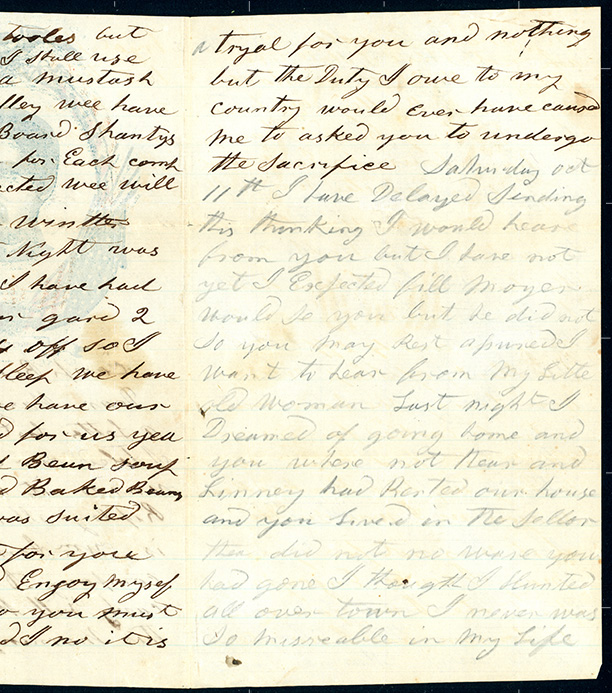 tooles but
I shall use
a mustash
lley wee have
Board Shantys
for Each comp
ected wee will
Wintter
Night was
I have had
gard 2
off so I
sleep we have
e have our
d for us yea
Bean soup
d Baked Beans
was suited
for you
Engoy myself
o you must
d I no it is
a tryal for you and nothing
but the Duty I owe to my
country would ever have caused
me to asked you to undergo
the sacrifice Saturday oct
11th I have Delayed Sending
this thinking I would hear
from you but I have not
yet I Expected bill Moyer
would so you but he did not
So you may Rest asured I
want to hear from My Little
old woman Last night I
Dreamed of going home and
you where not thear and
Linney had Rented our house
and you Lived in the Sellor
they did not no ware you
had gone I thought I Hunted
all over town I never was
So misreable in My Life